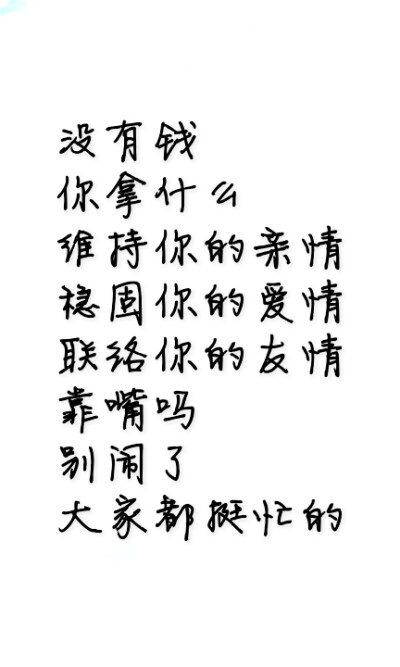 没有钱
你拿什么
维持你的亲情
稳固你的爱情
联络你的友情
靠嘴吗
别闹了
大家都挺忙的